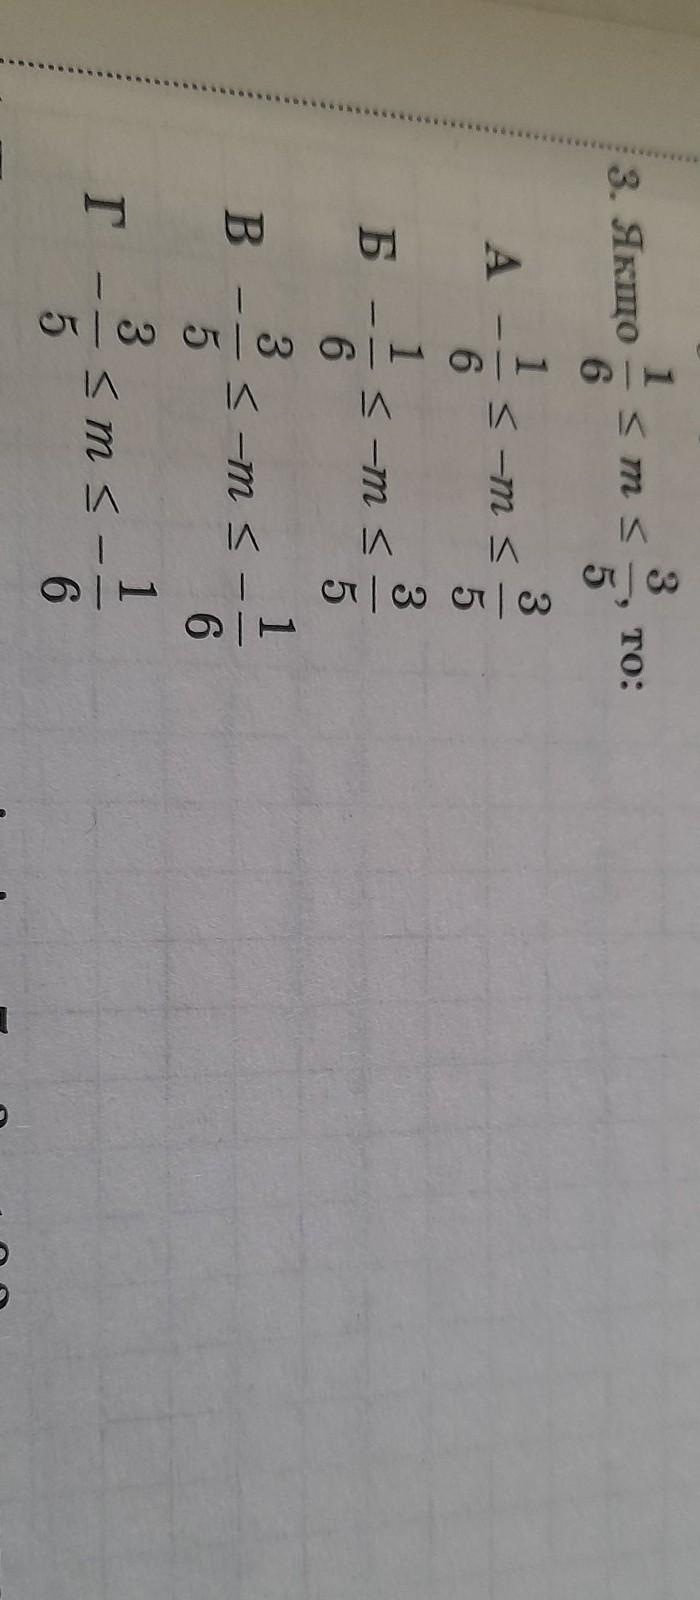 3. Якщо 1/6 ≤ m ≤ 3/5, то:
А -1/6 ≤ -m ≤ 3/5
Б -1/6 ≤ -m ≤ 3/5
В -3/5 ≤ -m ≤ -1/6
Г -3/5 ≤ m ≤ -1/6